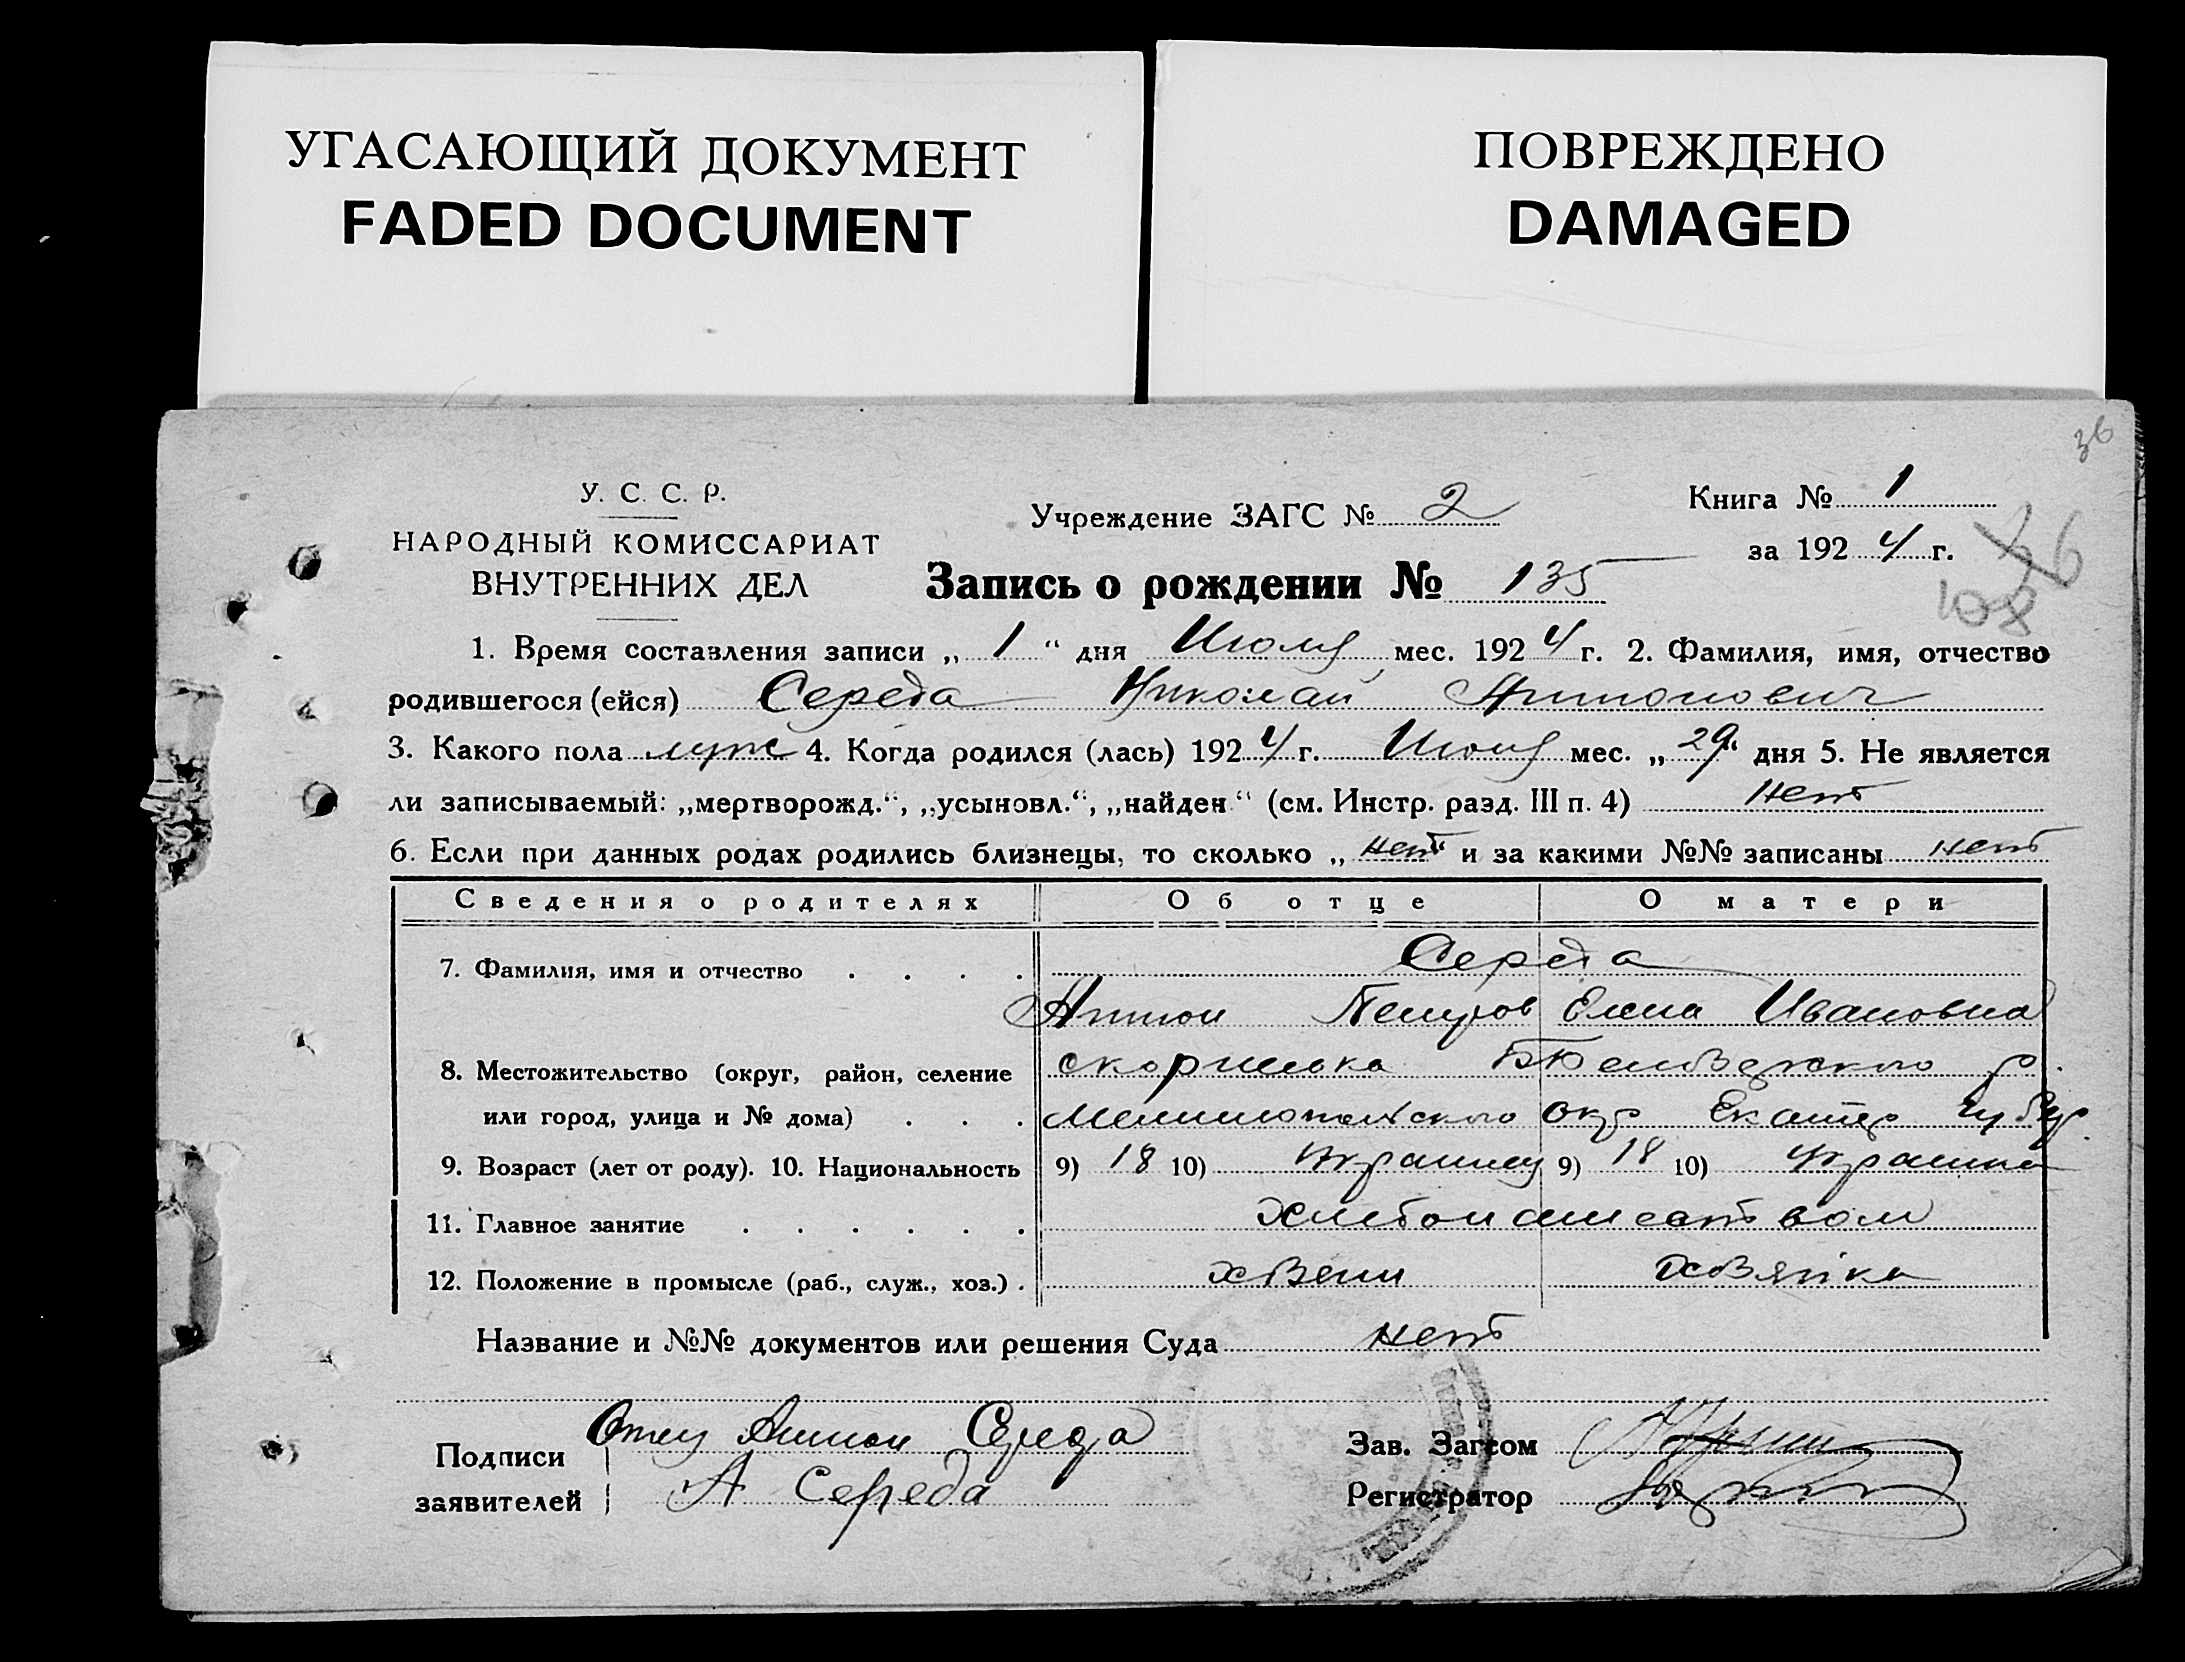 УГАСАЮЩИЙ ДОКУМЕНТ
FADED DOCUMENT
ПОВРЕЖДЕНО
DAMAGED
36
У. С. С. Р.
НАРОДНЫЙ КОМИССАРИАТ
ВНУТРЕННИХ ДЕЛ
Учреждение ЗАГС № 2
Книга № 1
за 1924 г.
108
Запись о рождении № 135
1. Время составления записи „ 1 “ дня Июля мес. 1924 г. 2. Фамилия, имя, отчество
родившегося (ейся) Середа Николай Антонович
3. Какого пола муж 4. Когда родился (лась) 1924 г. мес. „ 29 “ дня 5. Не является
ли записываемый: „мертворожд.“, „усыновл.“, „найден“ (см. Инстр. разд. III п. 4) нет
6. Если при данных родах родились близнецы, то сколько „ нет “ и за какими №№ записаны нет
Сведения о родителях Об отце О матери
7. Фамилия, имя и отчество . . . . Середа
Антон Петров Елена Ивановна
8. Местожительство (округ, район, селение
или город, улица и № дома) . . . Мелитопольского Окр Екатер губ
9. Возраст (лет от роду). 10. Национальность 9) 18 10) Украинец 9) 18 10) Украинка
11. Главное занятие . . . . . .
12. Положение в промысле (раб., служ., хоз.) .
Название и №№ документов или решения Суда нет
Подписи
заявителей
Отец Антон Середа
А Середа
Зав. Загсом
Регистратор